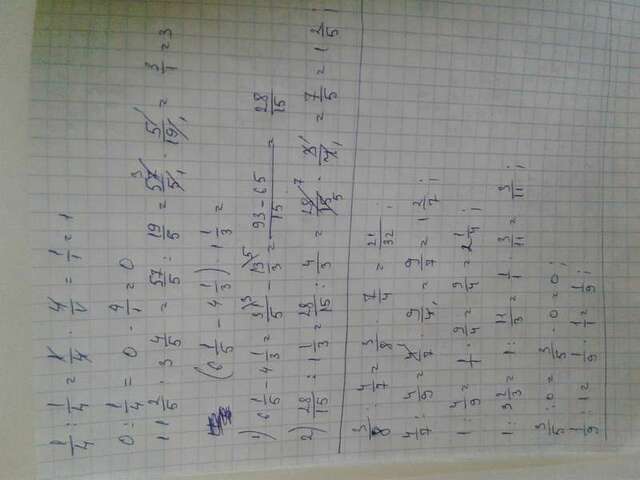 1/4 : 1/4 = 1/4 · 4/1 = 1/1 = 1
0 : 1/4 = 0 · 4/1 = 0
11 2/5 : 3 4/5 = 57/5 : 19/5 = 57/5 · 5/19 = 3/1 = 3
(6 1/5 - 4 1/3) : 1 1/3 =
1) 6 1/5 - 4 1/3 = 31/5 - 13/3 = 93-65/15 = 28/15
2) 28/15 : 1 1/3 = 28/15 : 4/3 = 28/15 · 3/4 = 7/5 = 1 2/5;
3/8 : 4/7 = 3/8 · 7/4 = 21/32;
4/7 : 4/9 = 4/7 · 9/4 = 9/7 = 1 2/7;
1 : 4/9 = 1/1 · 9/4 = 9/4 = 2 1/4;
1 : 3 2/3 = 1 : 11/3 = 1/1 · 3/11 = 3/11;
3/5 : 0 = 3/5 · 0 = 0;
1/9 : 1 = 1/9 · 1/1 = 1/9;